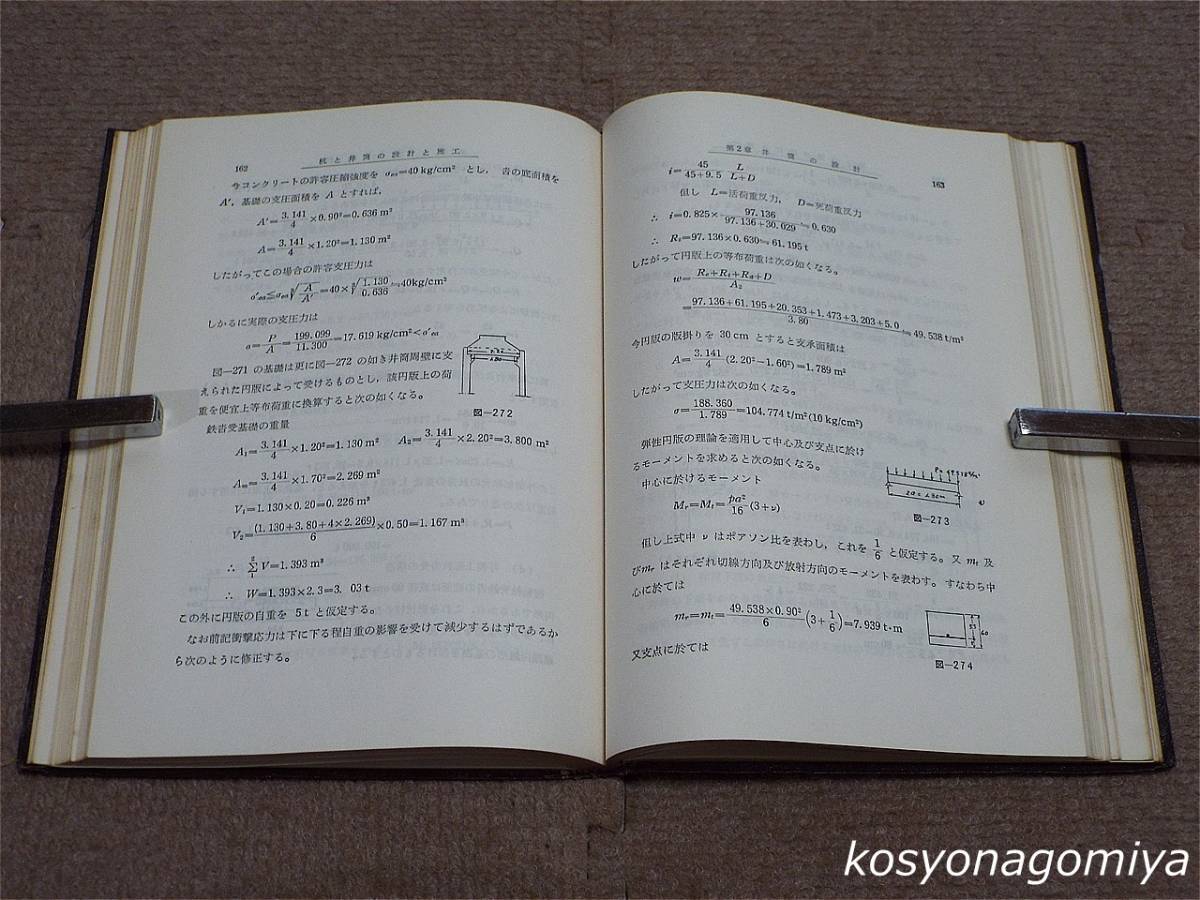 162
杭と井筒の設計と施工
今コンクリートの許容圧縮強度を σca=40 kg/cm² とし, 沓の底面積を
A′, 基礎の支圧面積を A とすれば,
A′=3.141/4×0.90²=0.636 m²
A=3.141/4×1.20²=1.130 m²
したがってこの場合の許容支圧力は
σ′ca≦σca∛(A/A′)=40×∛(1.130/0.636)≒40kg/cm²
しかるに実際の支圧力は
σ=P/A=199.099/11.300=17.619 kg/cm²<σ′ca
図—271 の基礎は更に図—272 の如き井筒周壁に支
えられた円版によって受けるものとし, 該円版上の荷
重を便宜上等布荷重に換算すると次の如くなる。
図—272
鉄沓受基礎の重量
A₁=3.141/4×1.20²=1.130 m² A₂=3.141/4×2.20²=3.800 m²
Aₘ=3.141/4×1.70²=2.269 m²
V₁=1.130×0.20=0.226 m³
V₂=(1.130+3.80+4×2.269)/6×0.50=1.167 m³
∴ Σ²₁V=1.393 m³
∴ W=1.393×2.3=3.03t
この外に円版の自重を 5t と仮定する。
なお前記衝撃応力は下に下る程自重の影響を受けて減少するはずであるか
ら次のように修正する。
第2章 井筒の設計
163
i=45/(45+9.5) L/(L+D)
但し L=活荷重反力, D=死荷重反力
∴ i=0.825×97.136/(97.136+30.029)≒0.630
∴ Ri=97.136×0.630≒61.195t
したがって円版上の等布荷重は次の如くなる。
w=(Re+Ri+Rd+D)/A₂
=(97.136+61.195+20.353+1.473+3.203+5.0)/3.80≒49.538t/m²
今円版の版掛りを 30cm とすると支承面積は
A=3.141/4(2.20²−1.60²)=1.789 m²
したがって支圧力は次の如くなる。
σ=188.360/1.789=104.774 t/m²(10 kg/cm²)
弾性円版の理論を適用して中心及び支点に於け
るモーメントを求めると次の如くなる。
中心に於けるモーメント
Mr=Mt=pa²/16(3+ν)
図—273
但し上式中 ν はポアソン比を表わし, これを 1/6 と仮定する。又 mt 及
びmr はそれぞれ切線方向及び放射方向のモーメントを表わす。すなわち中
心に於ては
mr=mt=49.538×0.90²/6(3+1/6)=7.939 t·m
又支点に於ては
図—274
kosyonagomiya